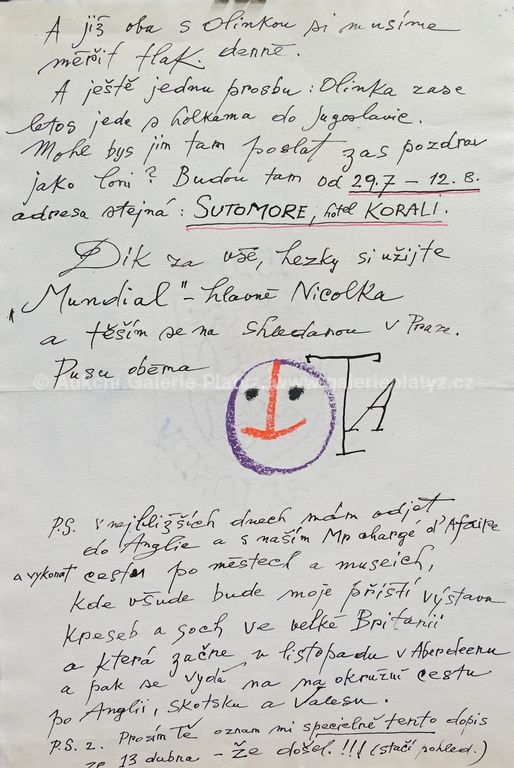 A již oba s Olinkou si musíme
měřit tlak. denně.
A ještě jednu prosbu: Olinka zase
letos jede s holkama do Jugoslavie.
Mohl bys jim tam poslat zas pozdrav
jako loni? Budou tam od 29.7 – 12. 8.
adresa stejná: SUTOMORE, hotel KORALI.
Dík za vše, hezky si užijte
"Mundial" – hlavně Nicolka
a těším se na shledanou v Praze.
Pusu oběma
OTA
© Aukční Galerie Platýz - www.galerieplatyz.cz
P.S. v nejbližších dnech mám odjet
do Anglie a s naším Mp chargé d'Afaire
a vykonat cestu po městech a museích,
kde všude bude moje příští výstava
kreseb a soch ve velké Británii
a která začne v listopadu v Aberdeenu
a pak se vydá na na okružní cestu
po Anglii, Skotsku a Valesu.
P.S. 2. Prosím Tě oznam mi specielně tento dopis
ze 13 dubna – že došel.!!! (stačí pohled.)